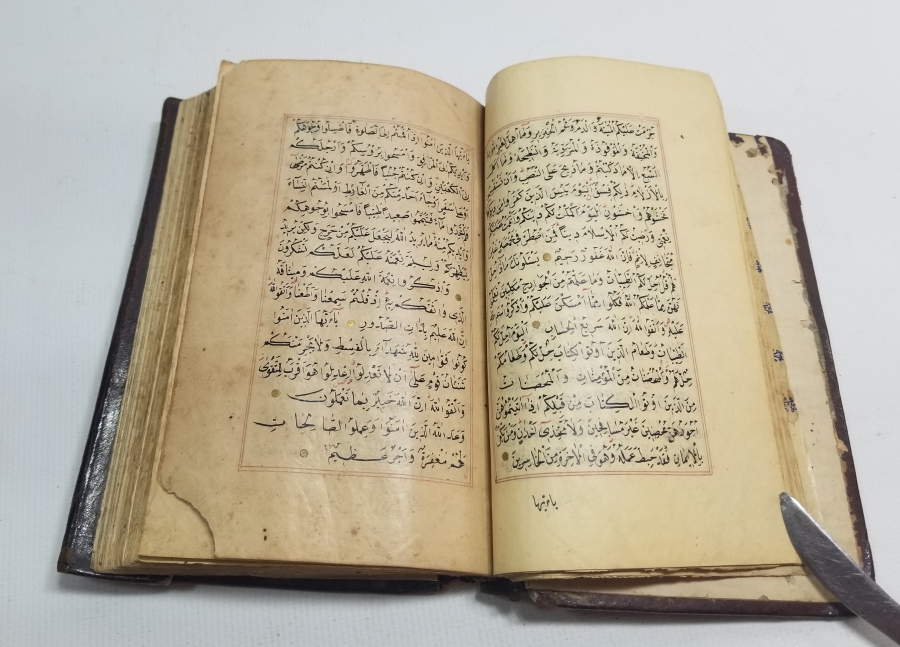 حرمت عليكم الميتة والدم ولحم الخنزير وما اهل لغير
والمنخنقة والموقوذة والمتردية والنطيحة وما اكل
السبع الا ما ذكيتم وما ذبح على النصب وان تستقسموا
بالازلام ذلكم فسق اليوم يئس الذين كفروا من
تخشوهم واخشون اليوم اكملت لكم دينكم واتممت عليكم
نعمتي ورضيت لكم الاسلام دينا فمن اضطر في مخمصة غير
متجانف لاثم فان الله غفور رحيم يسئلونك ماذا
لهم قل احل لكم الطيبات وما علمتم من الجوارح مكلبين
نهن مما علمكم الله فكلوا مما امسكن عليكم واذكروا اسم الله
عليه واتقوا الله ان الله سريع الحساب اليوم احل لكم
الطيبات وطعام الذين اوتوا الكتاب حل لكم وطعامكم
حل لهم والمحصنات من المؤمنات والمحصنات
من الذين اوتوا الكتاب من قبلكم اذا اتيتموهن
اجورهن محصنين غير مسافحين ولا متخذي اخدان ومن يكفر
بالايمان فقد حبط عمله وهو في الاخرة من الخاسرين
ياءيها
ياءيها الذين امنوا اذا قمتم الى الصلوة فاغسلوا وجوهكم
وايديكم الى المرافق وامسحوا برؤسكم وارجلكم
الى الكعبين وان كنتم جنبا فاطهروا وان كنتم مرضى
او على سفر او جاء احد منكم من الغائط او لمستم النساء
فلم تجدوا ماء فتيمموا صعيدا طيبا فامسحوا بوجوهكم
وايديكم منه ما يريد الله ليجعل عليكم من حرج ولكن يريد
ليطهركم وليتم نعمته عليكم لعلكم تشكرون
واذكروا نعمة الله عليكم وميثاقه
الذي واثقكم به اذ قلتم سمعنا واطعنا واتقوا الله
ان الله عليم بذات الصدور ياءيها الذين امنوا
كونوا قوامين لله شهداء بالقسط ولا يجرمنكم
شنئان قوم على ان لا تعدلوا اعدلوا هو اقرب للتقوى
واتقوا الله ان الله خبير بما تعملون
وعد الله الذين امنوا وعملوا الصالحات
لهم مغفرة واجر عظيم